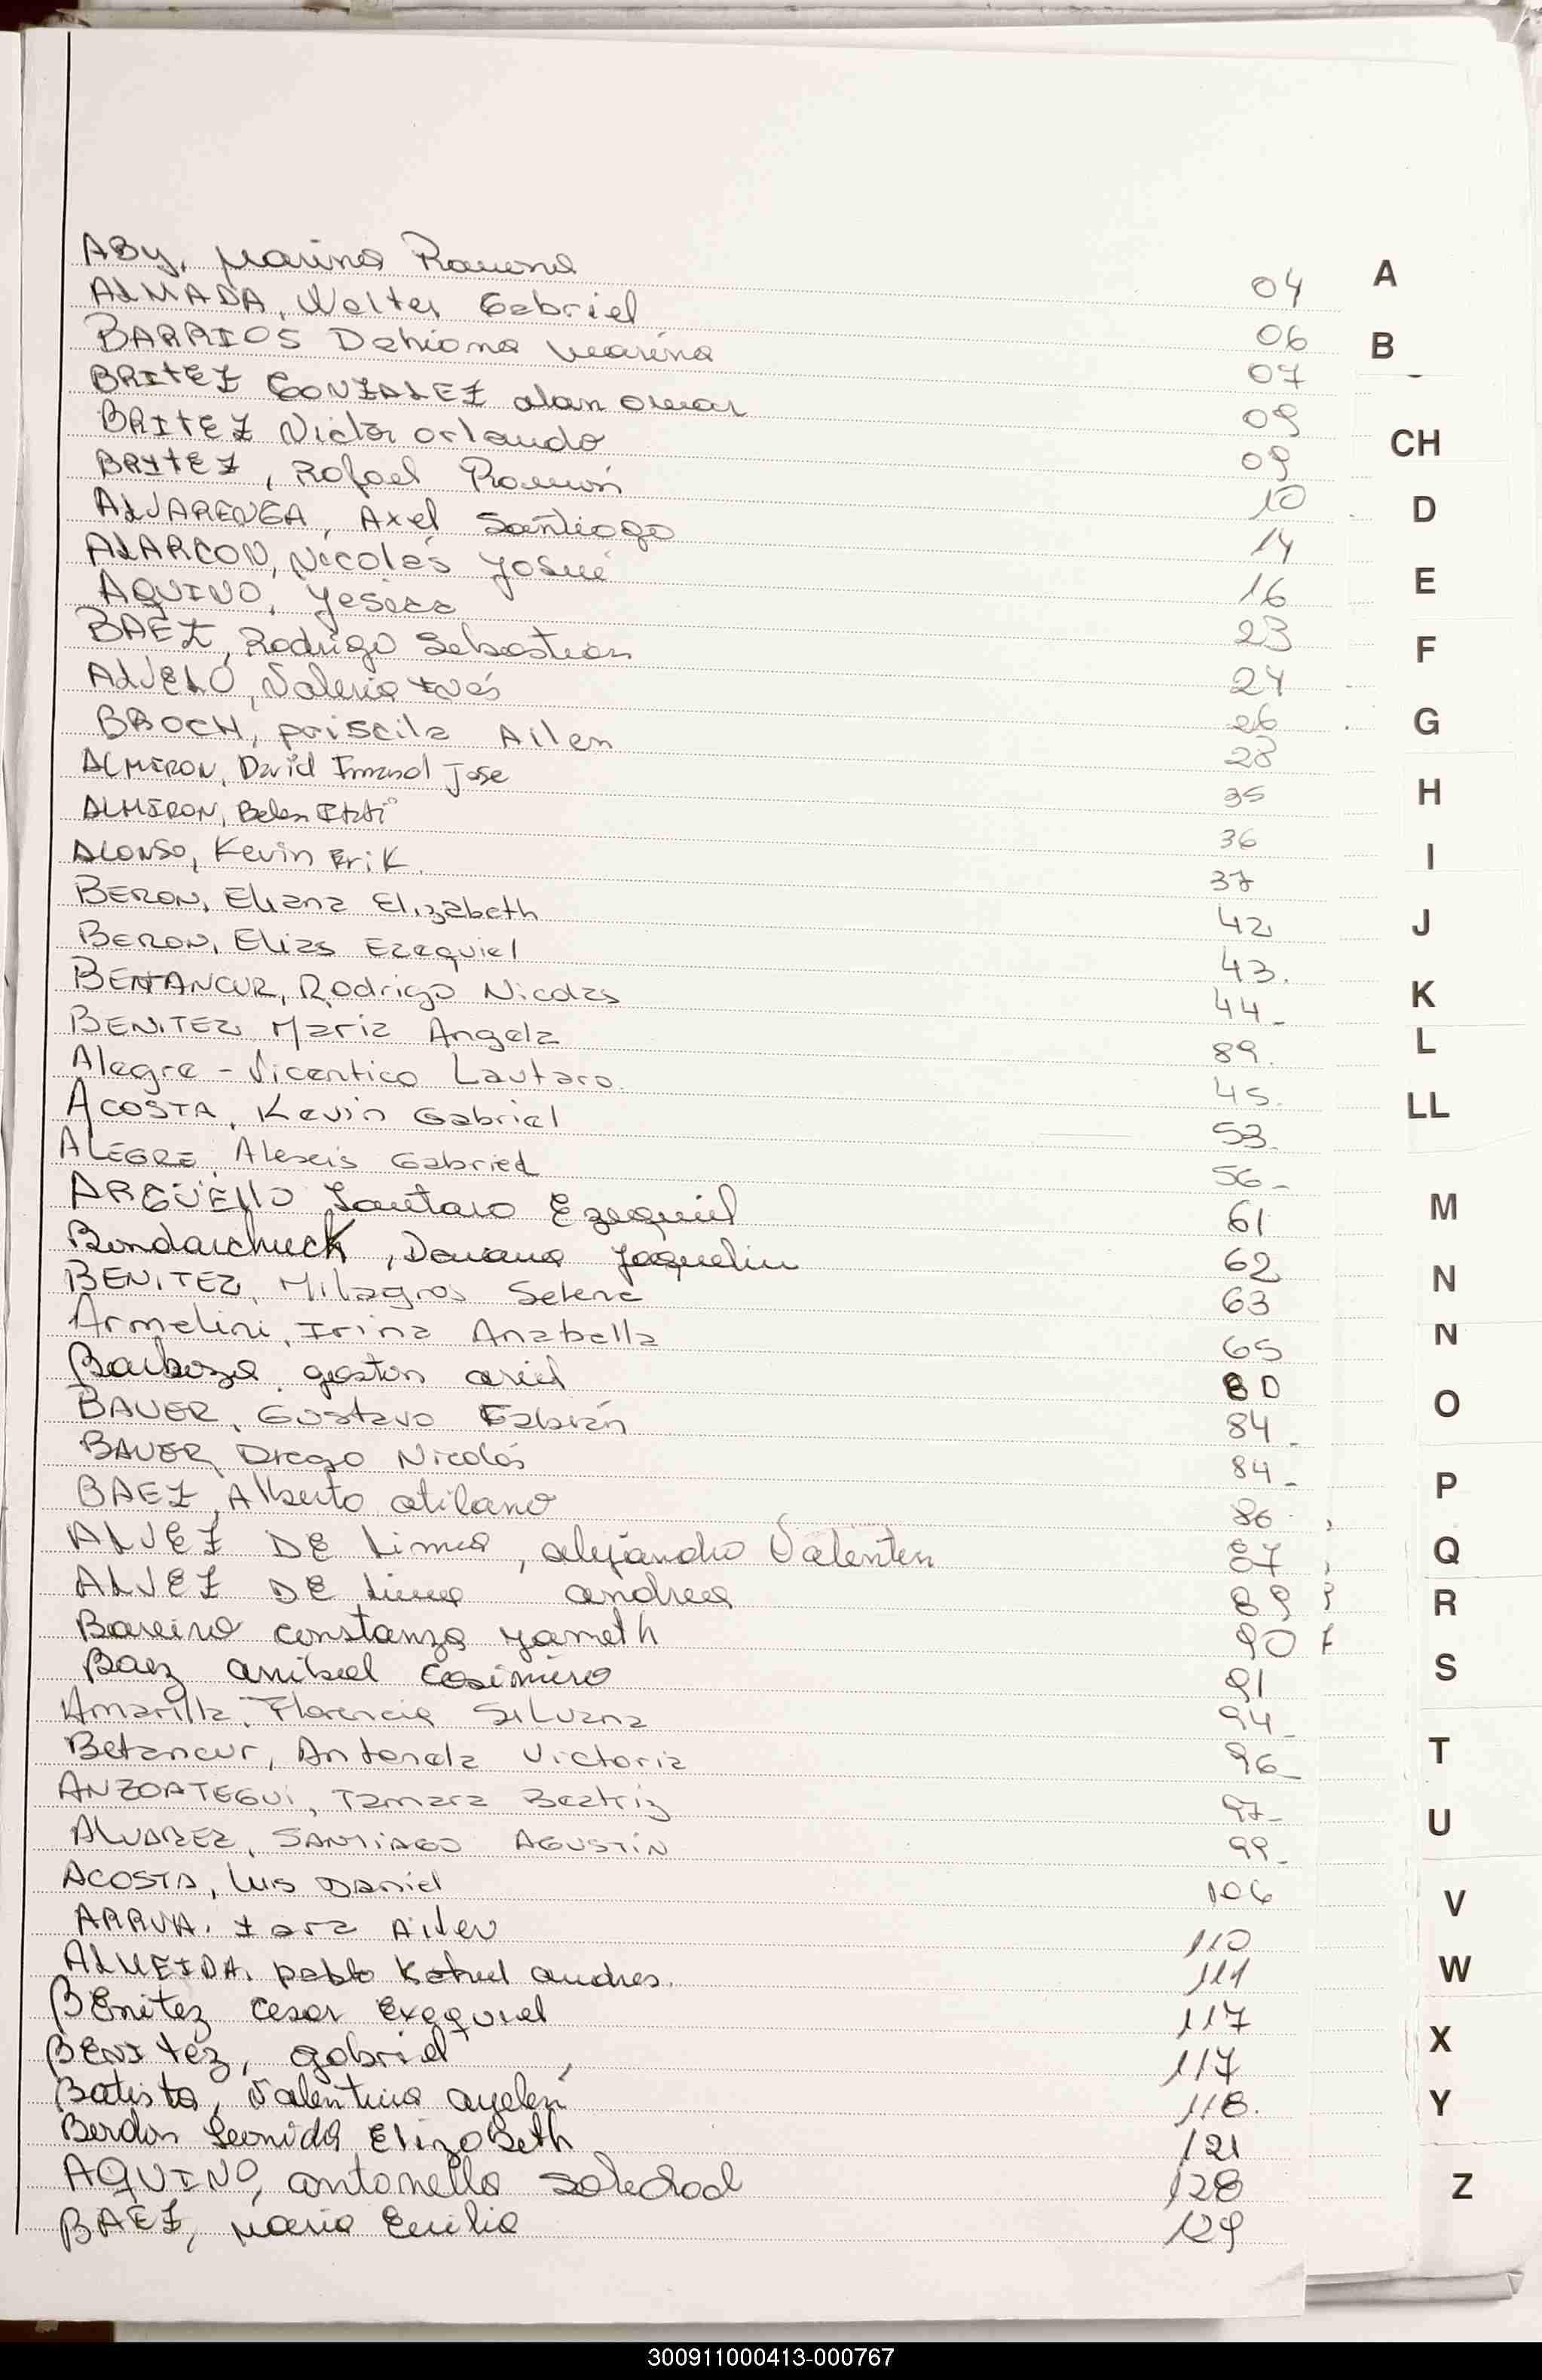 ABy, Marina Ramona 04
ALMADA, Walter Gabriel 06
BARRIOS Dahiana Marina 07
BRITEZ GONZALEZ alan omar 09
BRITEZ Victor orlando 09
BRITEZ, Rafael Ramón 10
ALVARENGA, Axel Santiago 14
ALARCON, Nicolás Josué 16
AQUINO, Yesica 23
BAEZ, Rodrigo Sebastian 24
ALVELO, Valeria Inés 26
BROCH, priscila Ailen 28
ALMIRON, David Imanol Jose 35
ALMIRON, Belen Itati 36
ALONSO, Kevin Erik. 37
BERON, Eliana Elizabeth 42
BERON, Elias Ezequiel 43.
BENTANCUR, Rodrigo Nicolas 44-
BENITEZ, Maria Angela 89.
Alegre - Vicentico Lautaro. 45.
ACOSTA, Kevin Gabriel 53.
ALEGRE, Alexis Gabriel 56-
ARGÜELLO Lautaro Ezequiel 61
Bondarchuck, Daiana Jaquelin 62
BENITEZ, Milagros Selene 63
Armelini, Irina Anabella 65
Barboza. gaston ariel 80
BAUER, Gustavo Fabián 84-
BAUER, Diego Nicolás 84-
BAEZ, Alberto atilano 86
ALVEZ DE Lima, alejandro Valentin 87
ALVEZ DE Lima andrea 89
Bareiro constanza yameth 90
Baez anibal Casimiro 91
Amarilla, Florencia Silvana 94-
Betancur, Antonela Victoria 96-
ANZOATEGUI, Tamara Beatriz 97-
ALVAREZ, SANTIAGO AGUSTÍN 99-
ACOSTA, Luis Daniel 106
ARRUA. Iara Ailen 110
ALMEIDA. pablo andres. 111
BEnitez Cesar Exequiel 117
BENITEZ, gabriel 117
Batista, Valentina ayelén 118.
Berdun Leonida ElizaBeth 121
AQUINO, antonella Soledad 128
BAEZ, Maria Emilia 129
A
B
CH
D
E
F
G
H
I
J
K
L
LL
M
N
N
O
P
Q
R
S
T
U
V
W
X
Y
Z
300911000413-000767